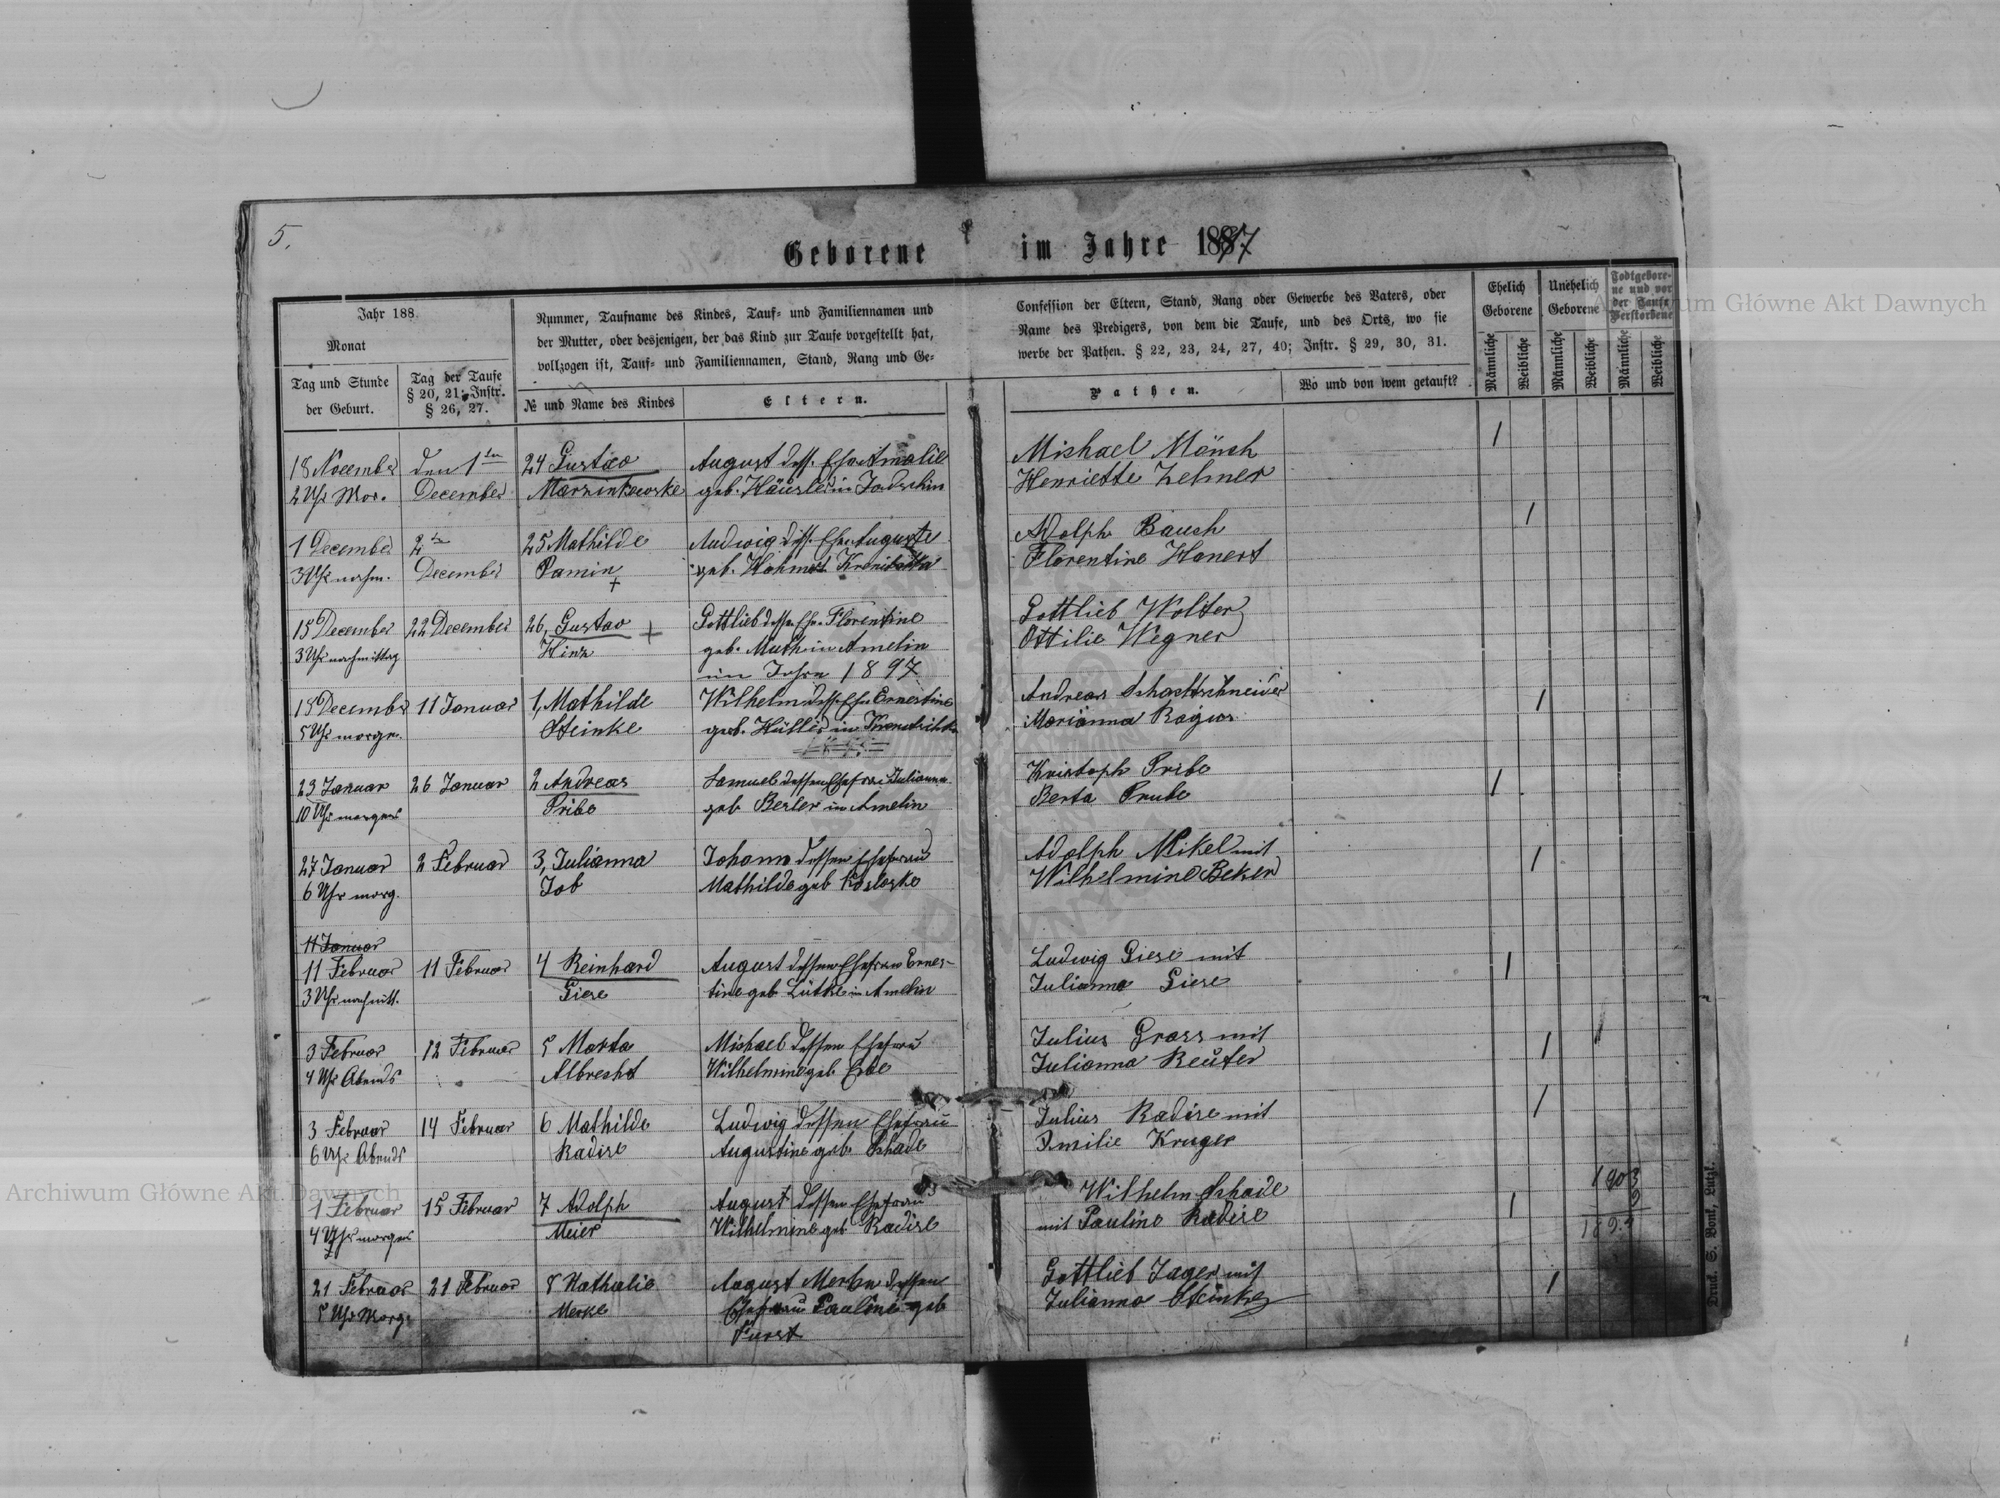 5.
Geborene im Jahre 1897
Jahr 188
Monat
Tag und Stunde
der Geburt.
Tag der Taufe
§ 20, 21; Instr.
§ 26, 27.
Nummer, Taufname des Kindes, Tauf= und Familiennamen und
der Mutter, oder desjenigen, der das Kind zur Taufe vorgestellt hat,
vollzogen ist, Tauf= und Familiennamen, Stand, Rang und Ge=
№ und Name des Kindes
Eltern.
Confession der Eltern, Stand, Rang oder Gewerbe des Vaters, oder
Name des Predigers, von dem die Taufe, und des Orts, wo sie
werbe der Pathen. § 22, 23, 24, 27, 40; Instr. § 29, 30, 31.
Pathen.
Wo und von wem getauft?
Ehelich
Geborene
Unehelich
Geborene
Todtgebore-
ne und vor
der Taufe
Verstorbene
Männliche
Weibliche
Männliche
Weibliche
Männliche
Weibliche
18 November den 1ten 24 Gustav August dess. Ehe Amalie Mishael Mönch
2 Uhr Mor. December Marzinkowske geb. Häusler in Henriette Zelmer
1 December 2te 25 Mathilde Ludwig dess. Ehe Auguste Adolph Baush
3 Uhr nachm. December Pamin + geb. Florentine Hanert
15 December 22 December 26, Gustav + Gottlieb dessen Ehe Florentine Gottlieb Wolter
3 Uhr nachmittag Hinz geb. Muth in Amelin Ottilie Wegner
im Jahre 1897
15 December 11 Januar 1, Mathilde Wilhelm dess. Ehe Ernestine Andreas Schattschneider
5 Uhr morgn. Steinke geb. Hüller in Marianna
23 Januar 26 Januar 2 Andreas Samuel dessen Ehefrau Julianna Kristoph Pribe
10 Uhr morgens Pribe geb Besler in Amelin Berta
27 Januar 2 Februar 3, Julianna Johann dessen Ehefrau Adolph Mikel mit
6 Uhr morg. Job Mathilde geb Kosloske Wilhelmine Beker
11 Januar
11 Februar 11 Februar 4 Reinhard August dessen Ehefrau Ernes- Ludwig Giese mit
3 Uhr nachmitt. Giese tine geb Lütke in Amelin Julianna Giese
3 Februar 12 Februar 5 Marta Mishael dessen Ehefrau Julius Grass mit
4 Uhr Abends Albresht Wilhelmine geb. Erbe Julianna Reuter
3 Februar 14 Februar 6 Mathilde Ludwig dessen Ehefrau Julius Radise mit
6 Uhr Abends Radise Augustine geb. Schade Emilie Kruger
1 Februar 15 Februar 7 Adolph August dessen Ehefrau Wilhelm Schade
4 Uhr morgens Meier Wilhelmine geb Radise mit Pauline Radise
1903
9
189
21 Februar 21 Februar 8 Nathalie August Merke dessen Gottlieb Jager mit
5 Uhr Morg. Merke Ehefrau Pauline geb Julianna Steinke
Furst
Druck S. Bonk, Lutzk.
Archiwum Główne Akt Dawnych
Archiwum Główne Akt Dawnych